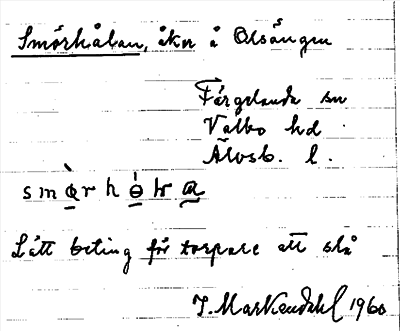 Smörhålan, åker å Olsängen
Färgelanda sn
Valbo hd.
Älvsb. l.
Lätt beting för torpare att slå
J. Markendahl 1960